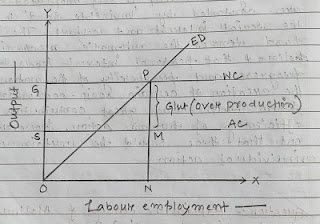 Y
ED
P
WC
G
Glut (over production)
AC
S
M
O
N
X
Output
Labour employment